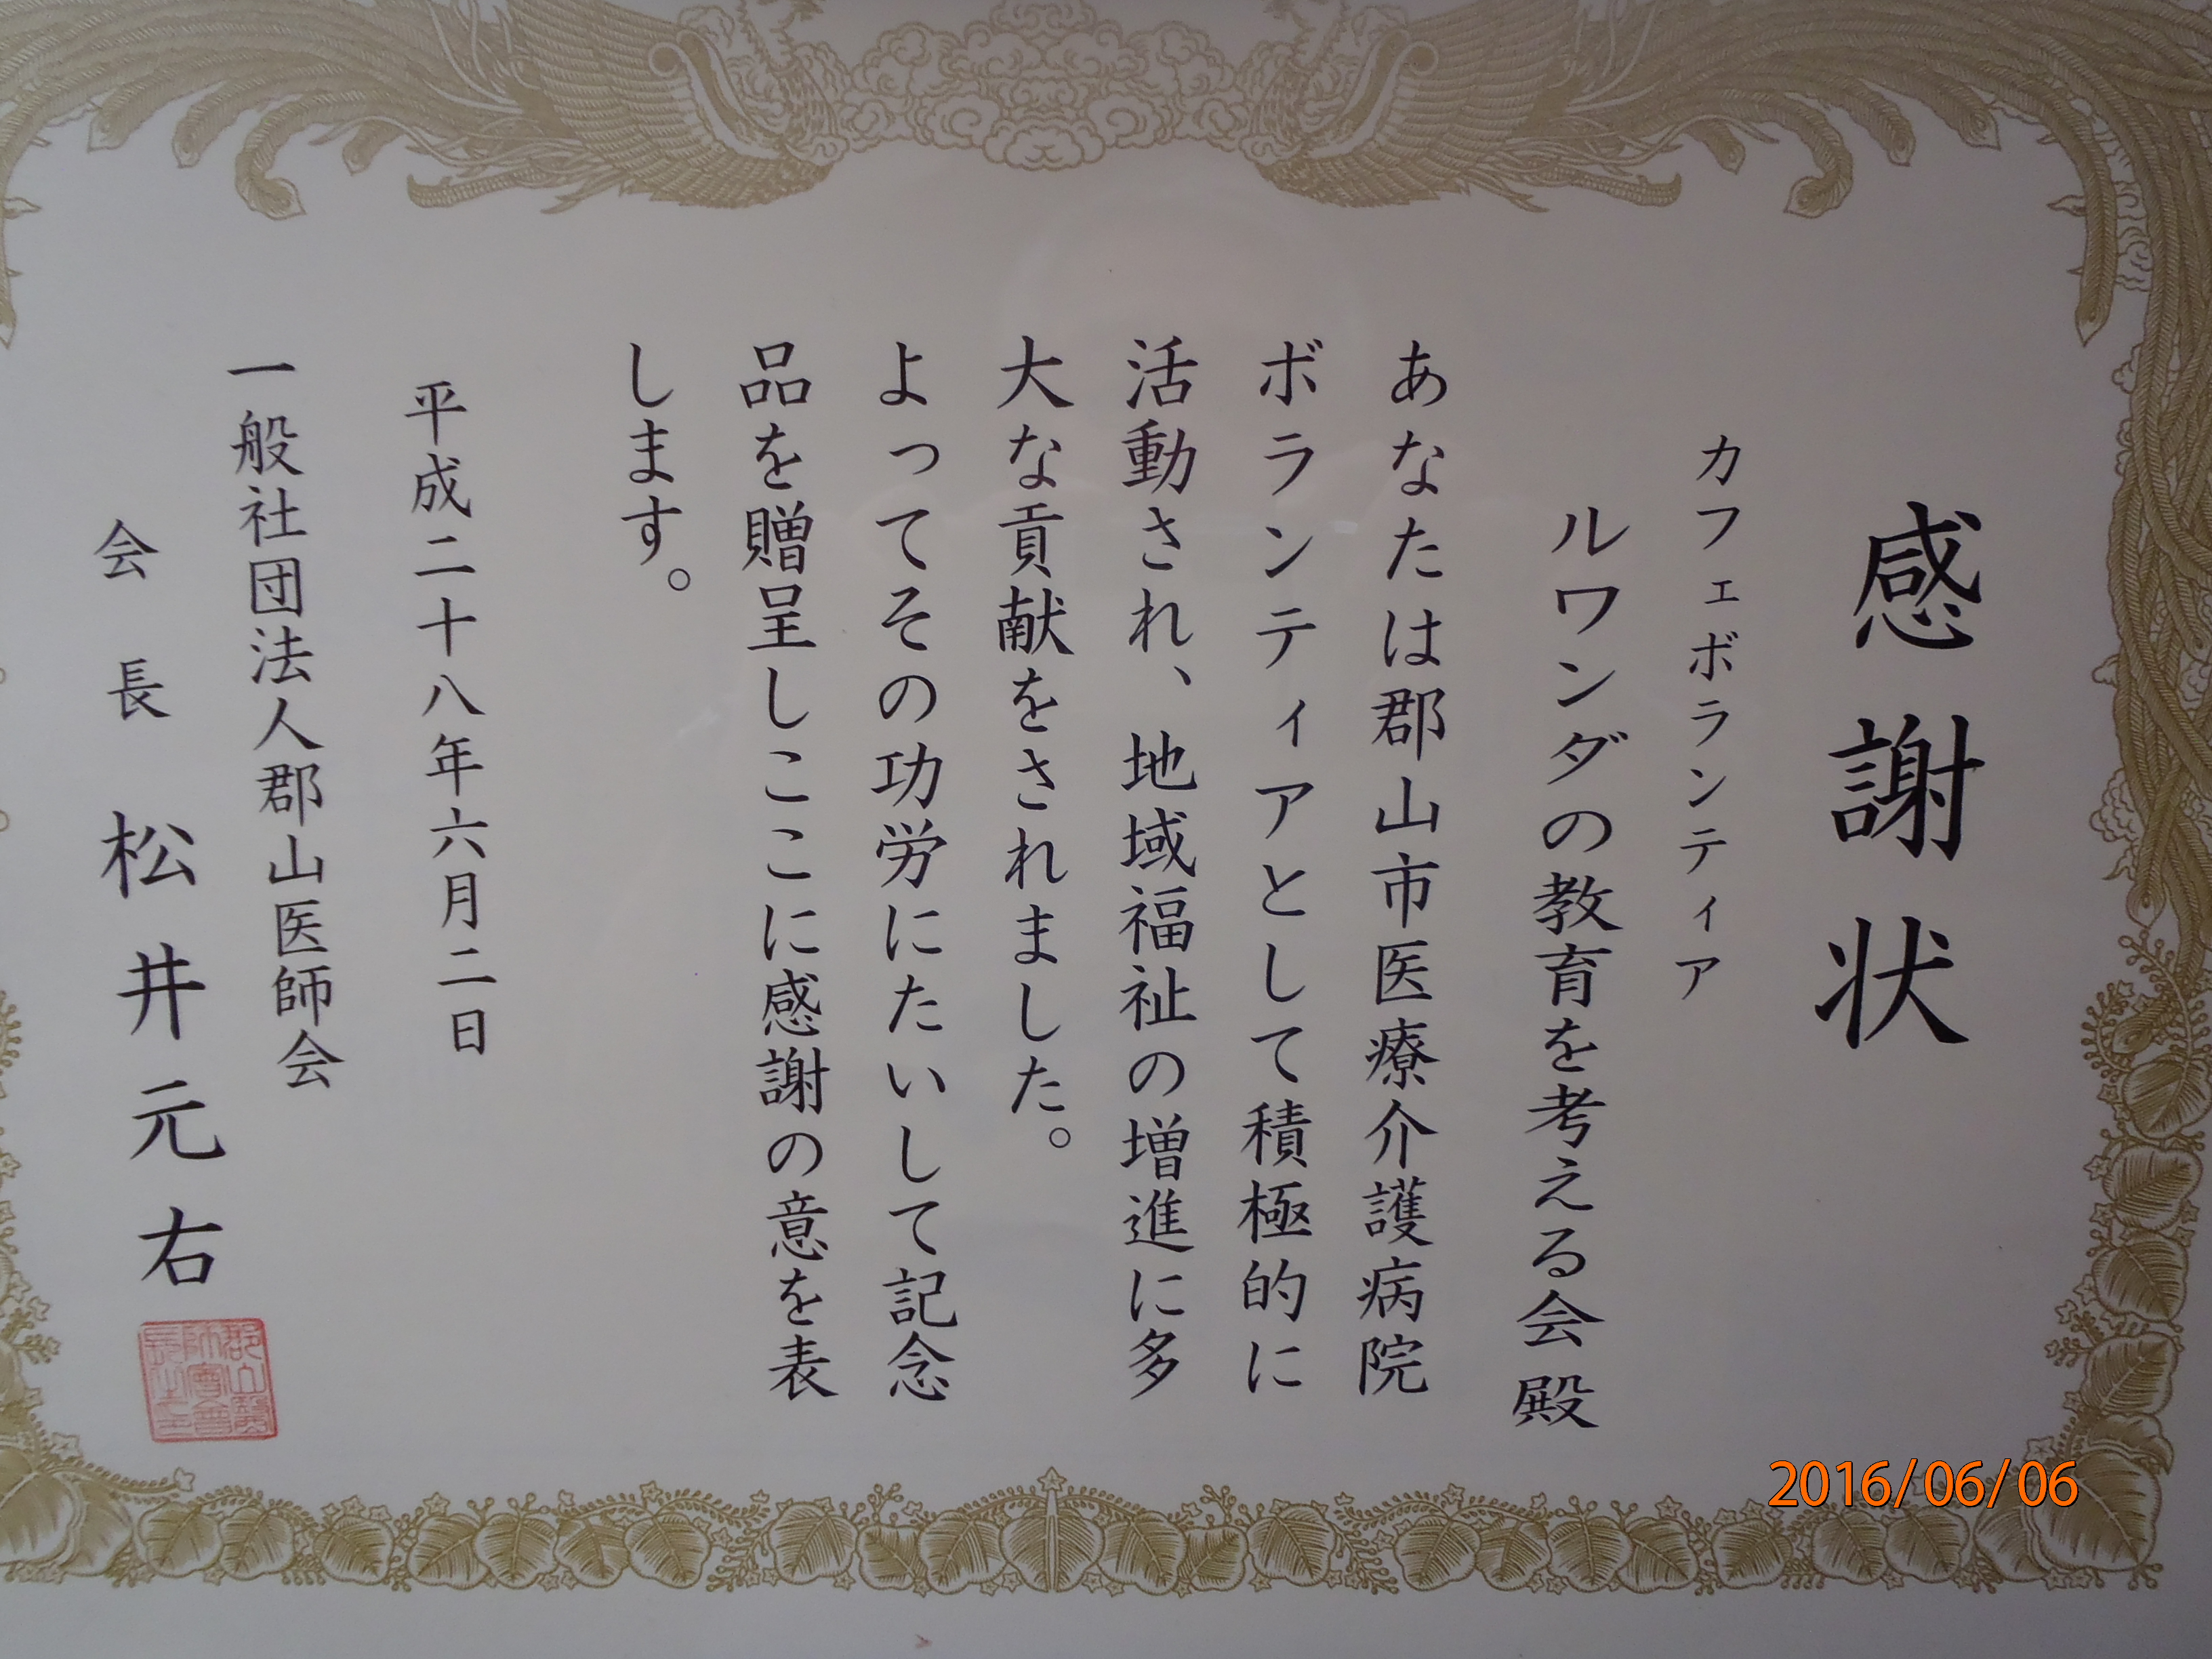 感謝状
カフェボランティア
ルワンダの教育を考える会殿
あなたは郡山市医療介護病院
ボランティアとして積極的に
活動され、地域福祉の増進に多
大な貢献をされました。
よってその功労にたいして記念
品を贈呈しここに感謝の意を表
します。
平成二十八年六月二日
一般社団法人郡山医師会
会長 松井元右
2016/06/06